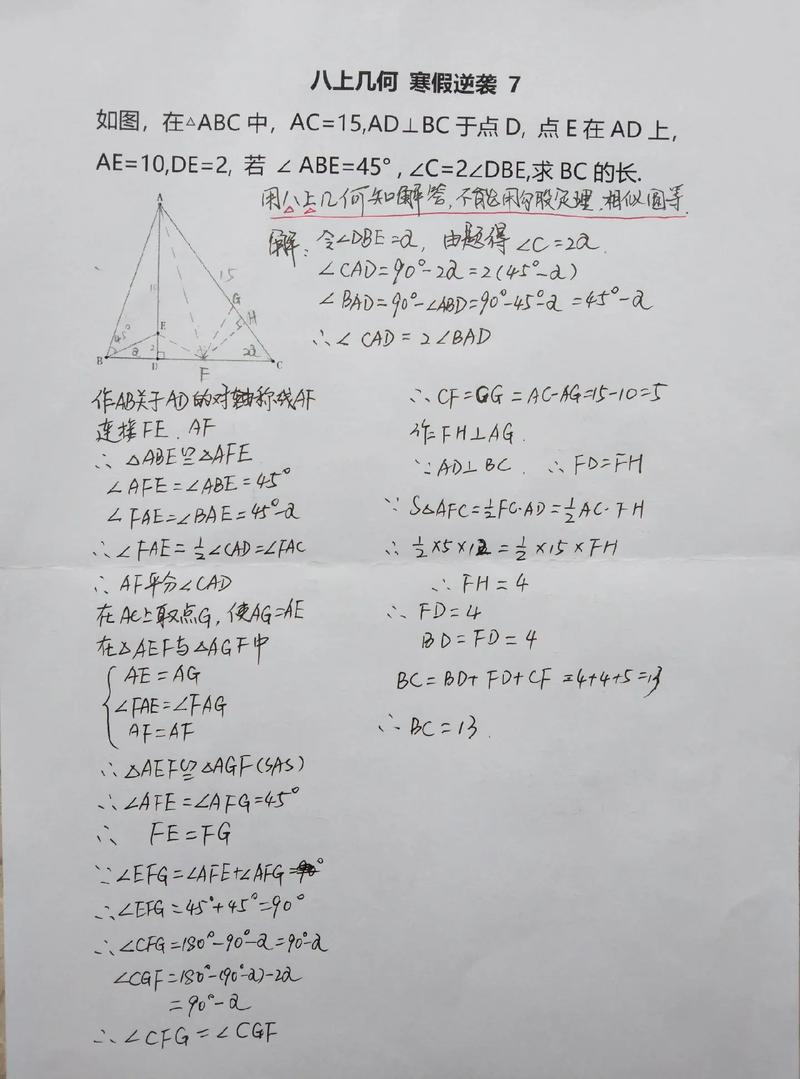 八上几何 寒假逆袭 7
如图，在△ABC中，AC=15,AD⊥BC于点D, 点E在AD上，
AE=10,DE=2, 若 ∠ ABE=45°, ∠C=2∠DBE,求BC的长.
用八上几何知识解答,不能用勾股定理.相似圆等.
解: 令∠DBE=α, 由题得∠C=2α.
∠CAD=90°-2α=2(45°-α)
∠BAD=90°-∠ABD=90°-45°-α=45°-α
∴∠ CAD = 2∠BAD
A
15
10
G
H
E
45°
α
2
2α
B
D
F
C
作AB关于AD的对轴称线AF
连接FE. AF
∴ △ABE≌△AFE
∠AFE=∠ABE=45°
∠FAE=∠BAE=45°-α
∴∠FAE=½∠CAD=∠FAC
∴ AF平分∠CAD
在AC上取点G, 使AG=AE
在△AEF与△AGF中
AE=AG
∠FAE=∠FAG
AF=AF
∴ △AEF≌△AGF(SAS)
∴∠AFE=∠AFG=45°
∴ FE=FG
∵∠EFG=∠AFE+∠AFG
∴∠EFG=45°+45°=90°
∴∠CFG=180°-90°-α=90°-α
∠CGF=180°-(90°-α)-2α
=90°-α
∴∠CFG=∠CGF
∴ CF=CG=AC-AG=15-10=5
作FH⊥AG.
∵ AD⊥BC. ∴ FD=FH
∵ S△AFC=½FC·AD=½AC·FH
∴ ½×5×12=½×15×FH
∴ FH=4
∴ FD=4
BD=FD=4
BC=BD+FD+CF=4+4+5=13
∴ BC=13.